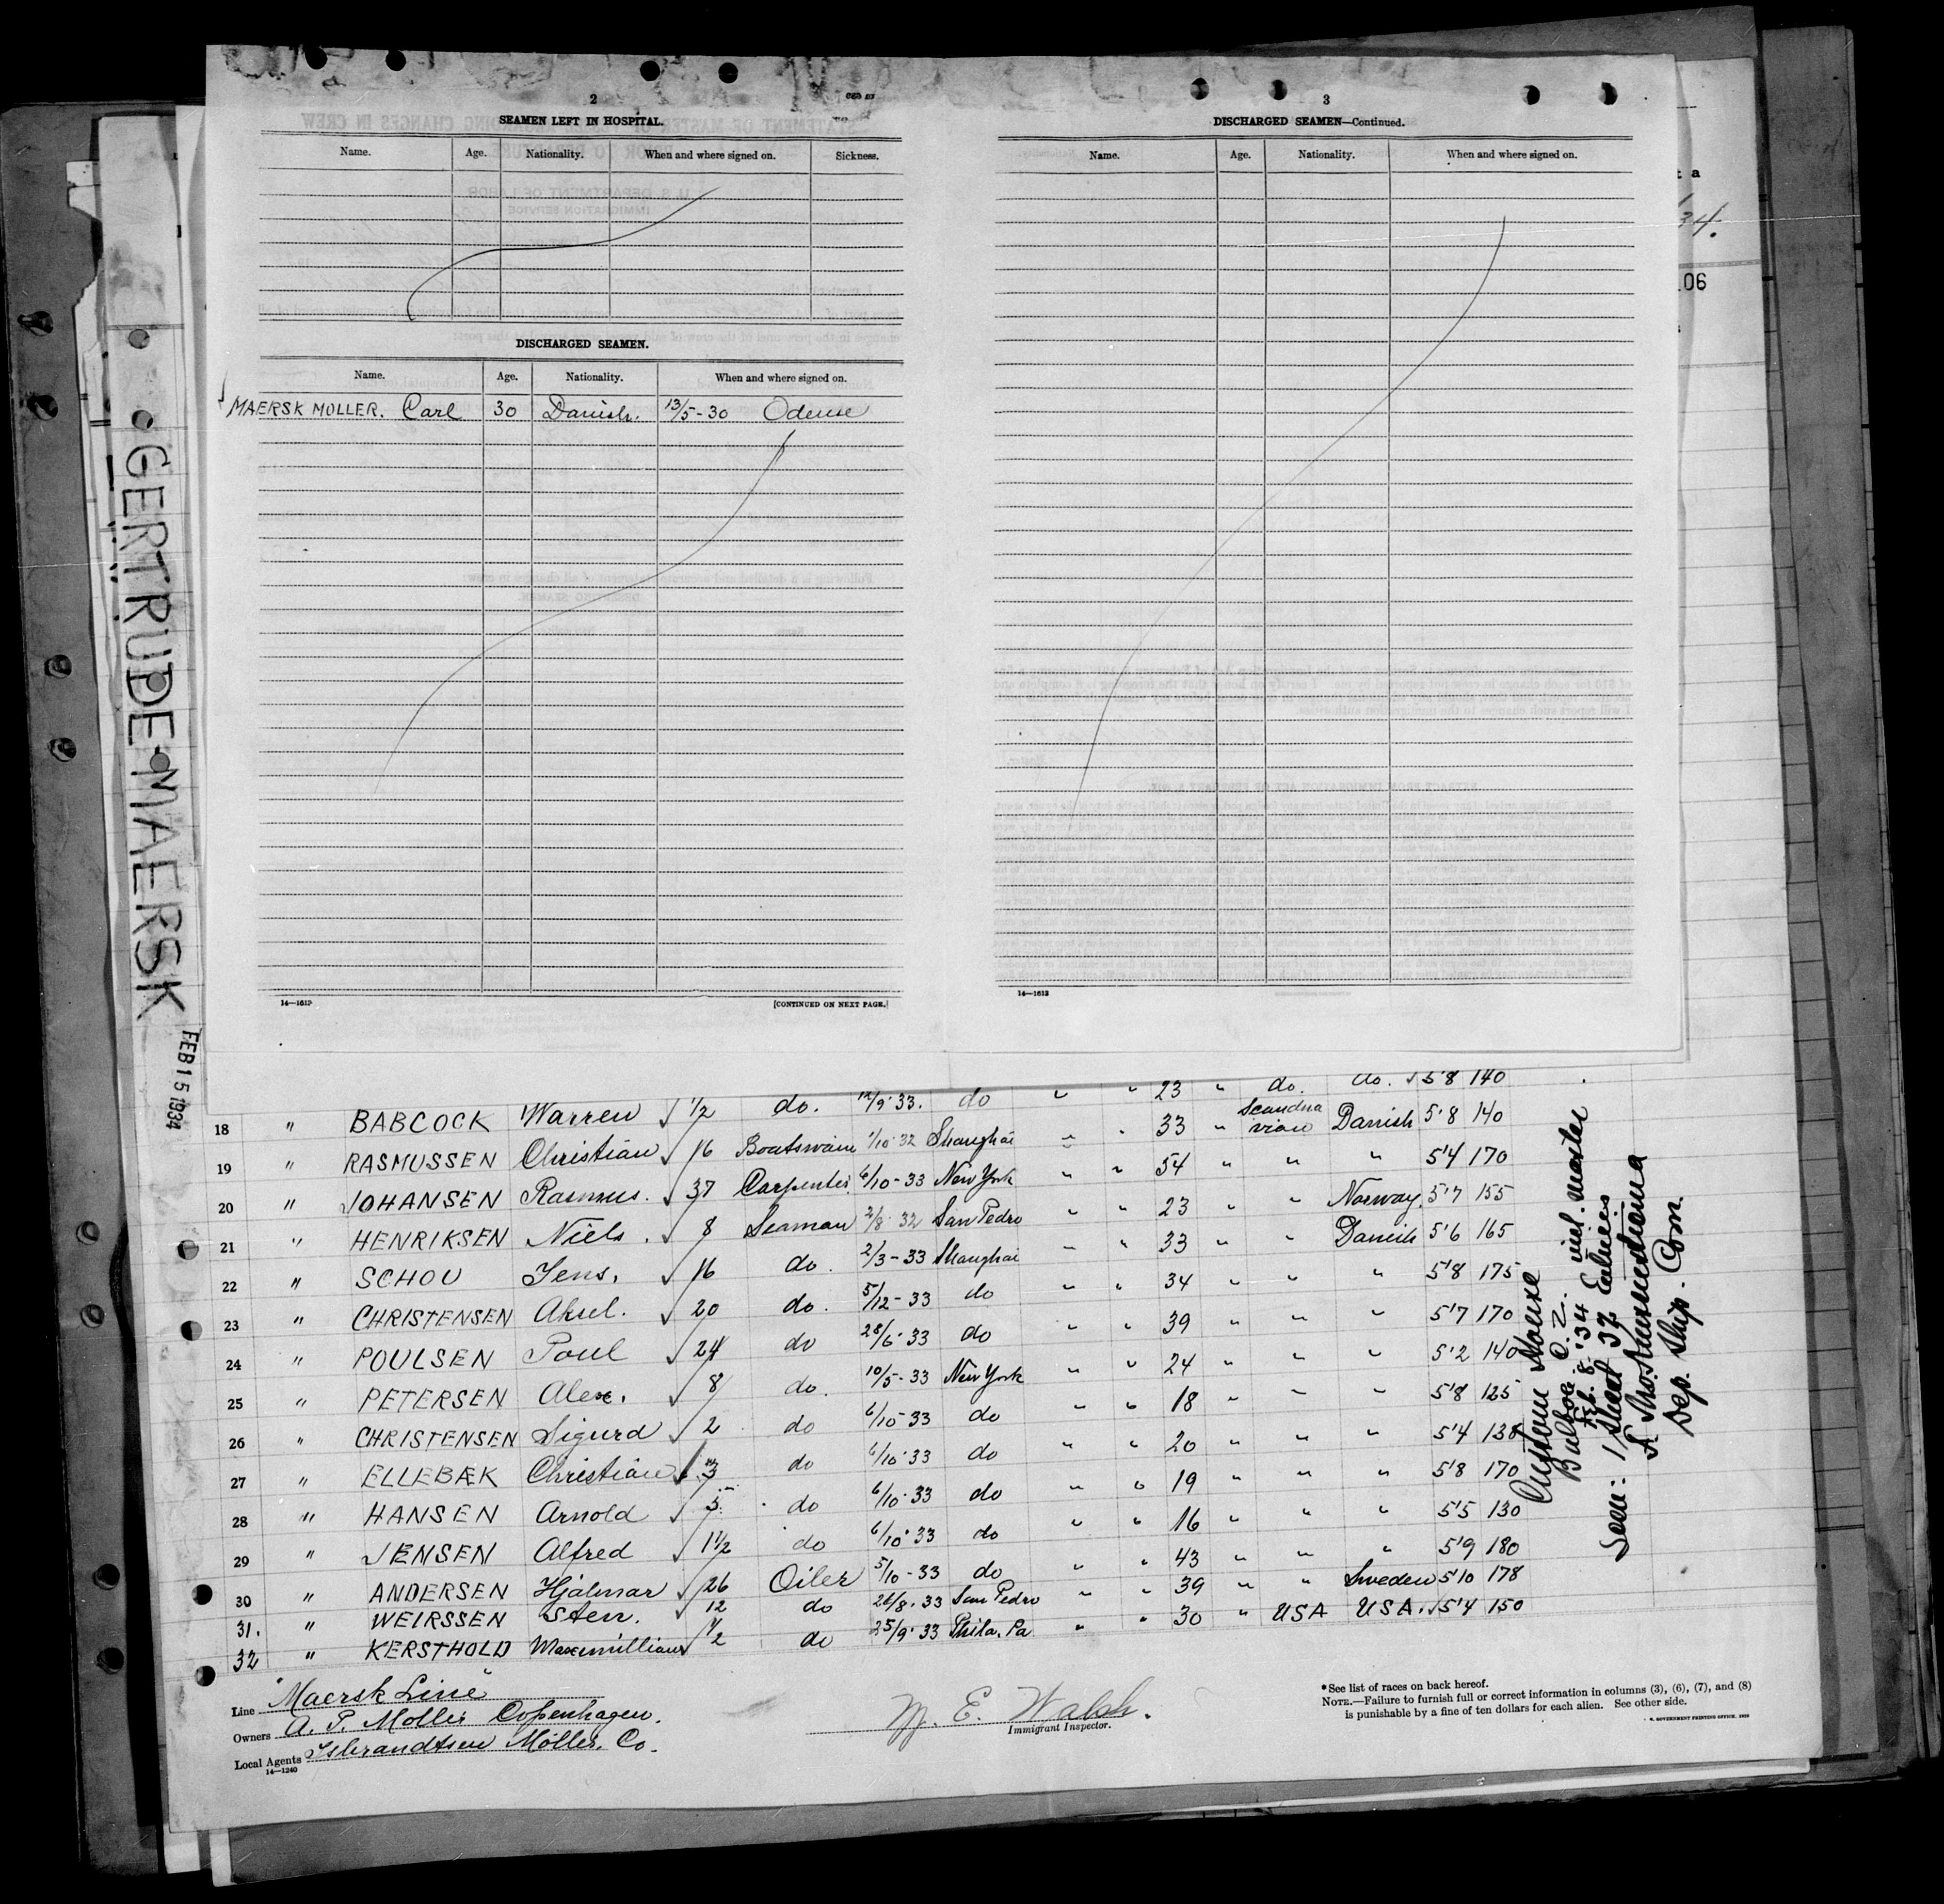 2
SEAMEN LEFT IN HOSPITAL.
Name. Age. Nationality. When and where signed on. Sickness.
DISCHARGED SEAMEN.
Name. Age. Nationality. When and where signed on.
MAERSK MOLLER. Carl 30 Danish. 13/5-30 Odense
14—1613
[CONTINUED ON NEXT PAGE.]
3
DISCHARGED SEAMEN—Continued.
Name. Age. Nationality. When and where signed on.
14—1613
34.
06
GERTRUDE MAERSK
FEB 15 1934
18 " BABCOCK Warren √ 1/2 do. 12/9·33. do " " 23 " do. do. √ 5'8 140
19 " RASMUSSEN Christian √ 16 Boatswain 1/10·32 Shanghai " " 33 " Scandinavian Danish 5'8 140
20 " JOHANSEN Rasmus. √ 37 Carpenter 6/10-33 New York " " 54 " " " 5'4 170
21 " HENRIKSEN Niels. √ 8 Seaman 2/8·32 San Pedro " " 23 " " Norway. 5'7 155
22 " SCHOU Jens. √ 16 do. 2/3-33 Shanghai " " 33 " " Danish 5'6 165
23 " CHRISTENSEN Aksel. √ 20 do. 5/12-33 do " " 34 " " " 5'8 175
24 " POULSEN Poul √ 24 do 28/6·33 do " " 39 " " " 5'7 170
25 " PETERSEN Alex. √ 8 do. 10/5-33 New York " " 24 " " " 5'2 140
26 " CHRISTENSEN Sigurd √ 2 do 6/10-33 do " " 18 " " " 5'8 125
27 " ELLEBÆK Christian √ 3 do 6/10·33 do " " 20 " " " 5'4 138
28 " HANSEN Arnold √ 5 do 6/10·33 do " " 19 " " " 5'8 170
29 " JENSEN Alfred √ 1 1/2 do 6/10·33 do " " 16 " " " 5'5 130
30 " ANDERSEN Hjalmar √ 26 Oiler 5/10-33 do " " 43 " " " 5'9 180
31. " WEIRSSEN Sten. √ 12 do 26/8·33 San Pedro " " 39 " " Sweden 5'10 178
32 " KERSTHOLD Maxemillian √ 1/2 do 25/9·33 Phila. Pa " " 30 " USA USA. √ 5'4 150
Custom House
Balboa C. Z.
Feb. 8. '34 incl. master
Seen: 1 Sheet 32 Entries
Dep. Ship. Com.
Line "Maersk Line"
Owners A. P. Moller Copenhagen.
Local Agents Isbrandtsen Moller. Co.
14—1240
M. E. Walsh.
Immigrant Inspector.
* See list of races on back hereof.
NOTE.—Failure to furnish full or correct information in columns (3), (6), (7), and (8)
is punishable by a fine of ten dollars for each alien. See other side.
GOVERNMENT PRINTING OFFICE